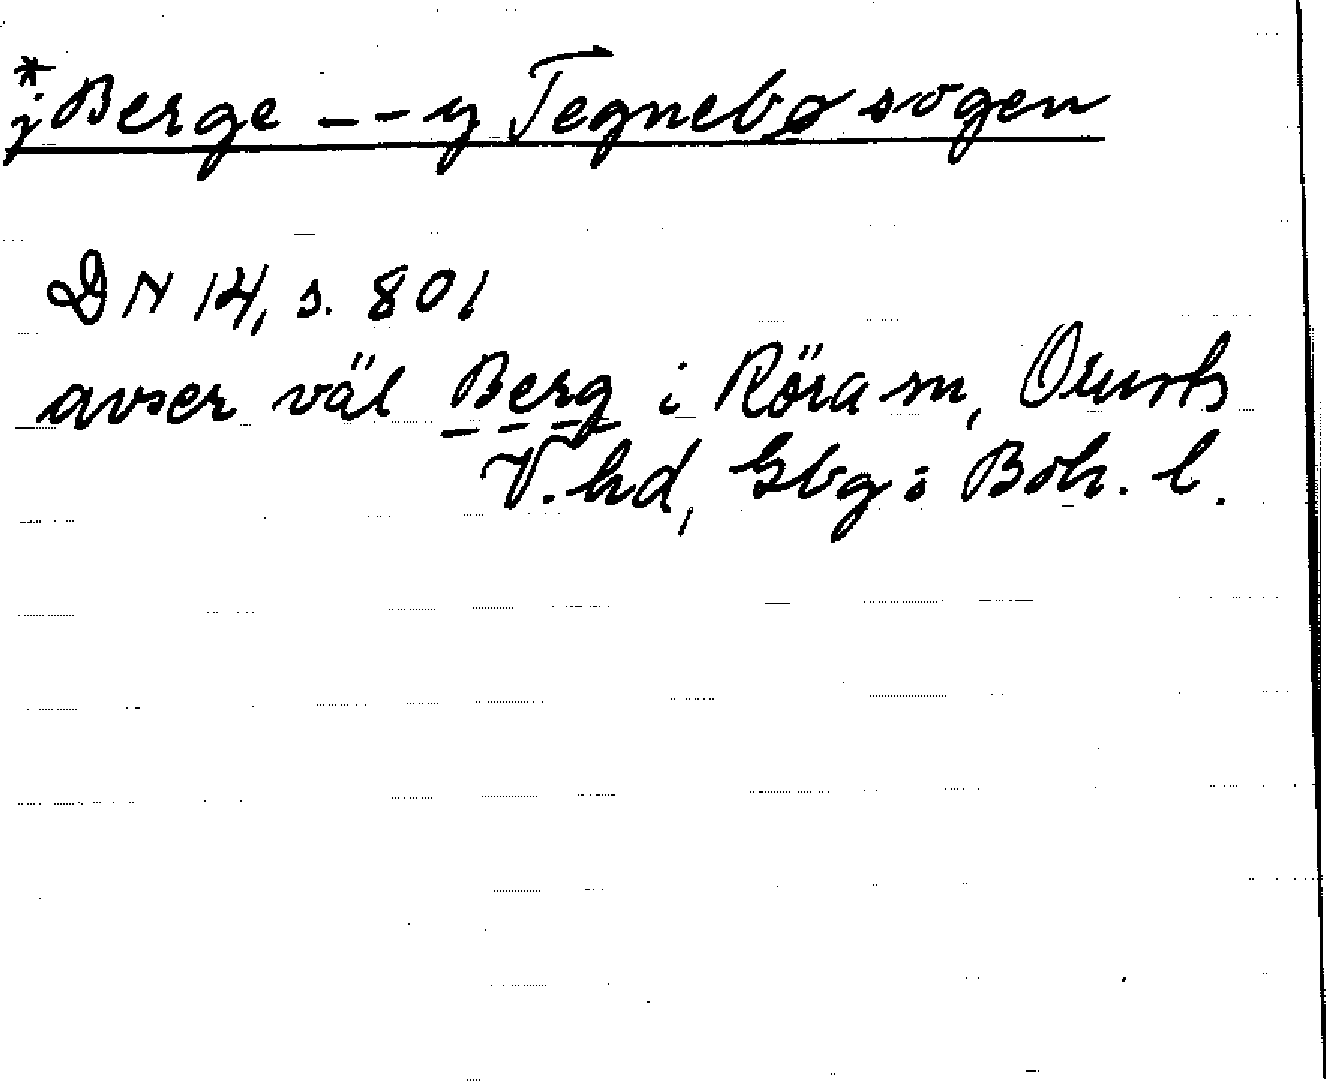 *
j Berge -- y Tegnebø sogen
DN 14, s. 801
avser väl Berg i Röra sn, Orusts
V. hd, Gbg o Boh. l.